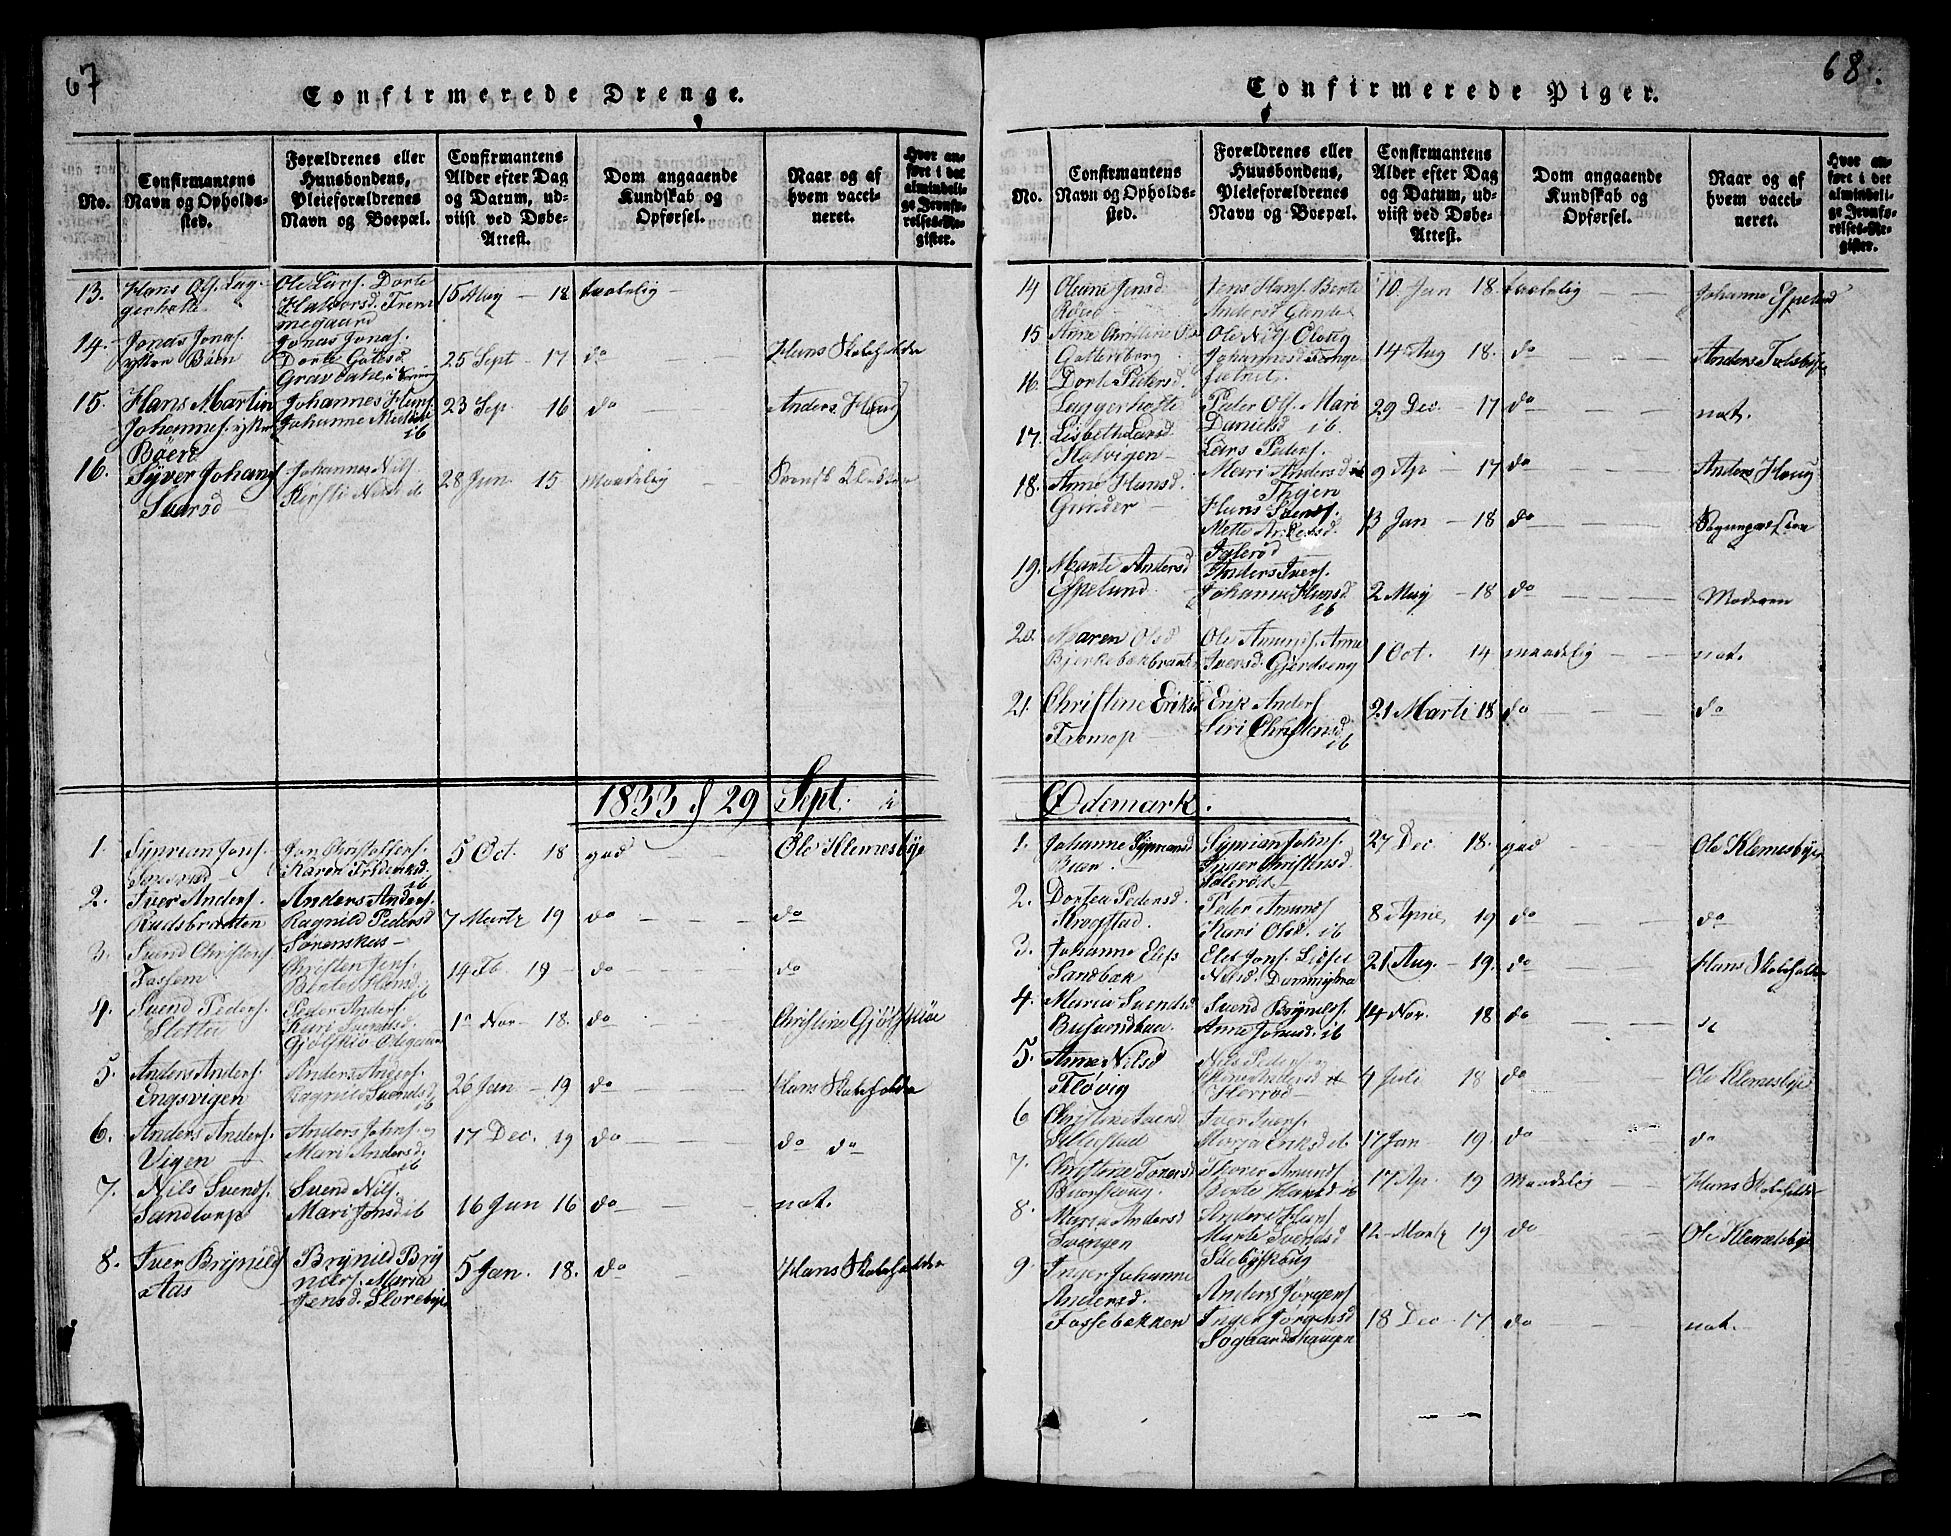 67
Confirmerede Drenge.
No.
Confirmantens
Navn og Opholds-
sted.
Forældrenes eller
Huusbondens,
Pleieforældrenes
Navn og Boepæl.
Confirmantens
Alder efter Dag
og Datum, ud-
viist ved Døbe-
Attest.
Dom angaaende
Kundskab og
Opførsel.
Naar og af
hvem vacci-
neret.
Hvor an-
ført i det
almindeli-
ge Jevnfø-
relses-Re-
gister.
13. Hans Ols. Lag-
gerholte
Ole Lars. Dorte
Halvorsd.
15 May - 18 taalelig -
14. Jonas Jonas.
ytter Böen
Jonas Jonas.
Dorte
25 Sept - 17 do - Hans Skoleholder
15. Hans Martin
Johannes. ytter
Böen
Johannes Hans.
Johanne
ib
23 Sep. 16 do - Anders Haug
16. Syver Johans
Johannes Nils.
Kirsti Nilsd ib
28 Jun. 15 Maadelig -
1833 d 29 Sept. i
1 Syprian Jons.
Jon Christophers.
Karen
ib
5 Oct. 18 god - Ole Klemesbye
2. Iver Anders.
Rudsbraatten
Anders Anders.
Ragnild Pedersd
7 Martz 19 do - do
3. Svend Christens
Fossem
Christen Jens.
Berte Hansd
ib
14 Fb 19 - do - do
4. Svend Peders.
Slette
Peder Anders.
Kari Svendsd.
Nov - 18. do - Christine
5. Anders Anders.
Engsvigen
Anders Anders.
Ragnild Svendsd
ib
26 Jan - 19 do - Hans Skoleholder
6. Anders Anders.
Vigen -
Anders Johns. og
Mari Andersd.
ib
17 Dec. 19 do - do do
7. Nils Svends.
Sandtorp
Svend Nils.
Mari Jonsd ib
16 Jun 16 do - nat.
8. Iver Brynilds
Aas
Brynild Bry
nilds. Maria
Jensd. Storebye
5 Jan. 18. do - Hans Skoleholder
68.
Confirmerede Piger.
No.
Confirmantens
Navn og Opholds-
sted.
Forældrenes eller
Huusbondens,
Pleieforældrenes
Navn og Boepæl.
Confirmantens
Alder efter Dag
og Datum, ud-
viist ved Døbe-
Attest.
Dom angaaende
Kundskab og
Opførsel.
Naar og af
hvem vacci-
neret.
Hvor an-
ført i det
almindeli-
ge Jevnfø-
relses-Re-
gister.
14 Oleane Jensd
Jens Hans. Berte
Andersd
10. Jun 18. taalelig - - Johanne Espelund
15 Anne Christine
Ole Nils. Eloug
Johannesd
14 Aug 18. do - -
16. Dorte Pedersd.
Laggerholte
Peder Ols. Mari
Danielsd ib
29 Dec. - 17 do - - nat.
17. Lisbeth Larsd.
Holvigen -
Lars Peders.
Mari Andersd ib
9 Ap - 17 do - - Anders Haug
18. Anne Hansd.
Ginder -
Hans Svends.
Mette
13 Jan - 18 do - -
19. Marte Andersd
Espelund
Anders Ivers.
Johanne Hansd
ib
2 May - 18 do - - Moderen
20. Maren Olsd
Ole Amunds. Anne
Iversd.
1 Oct. 14 maadelig - - nat.
21. Christine Eriksd
Tromop -
Erik Anders
Siri Christensd.
ib
21 Marti 18 do - - do
Ødemark.
1. Johanne Sypriansd
Buer. -
Syprian Johns.
Inger Christensd.
27 Dec 18. god - - Ole Klemesbye
2. Dortea Pedersd.
Krogstad.
Peder Amunds
Kari Olsd. ib
8 Apriel 19 do - - do
3. Johanne Elefs
Sandbæk
Elef Jons. Lisbet
Nilsd.
21 Aug. - 19. do - - Hans Skoleholder
4. Maria Svendsd.
Svend Brynilds.
Anne Jonasd. ib
14 Nov. 18 do - -
5. Anne Nilsd
Fløvig
Nils Peders. og
4 Juli 18 do - - Ole Klemesbye
6 Christine Iversd
Sillestad
Iver Ivers.
Maria Eriksd ib
17 Jan - 19. do - - do
7. Christine Torersd
Buerskoug.
Thorer Amunds
Berte Hansd ib
17 Ap. 19 Maadelig - - Hans Skoleholder
8. Maria Andersd
Svengen
Anders Hans
Marte Svendsd
12 Martz 19 do - - Ole Klemesbye
9 Inger Johanne
Andersd.
Fossebækken
Anders Jörgens
Inger Jørgensd
Sogaardshaugen
18 Dec - 17 do - - nat.